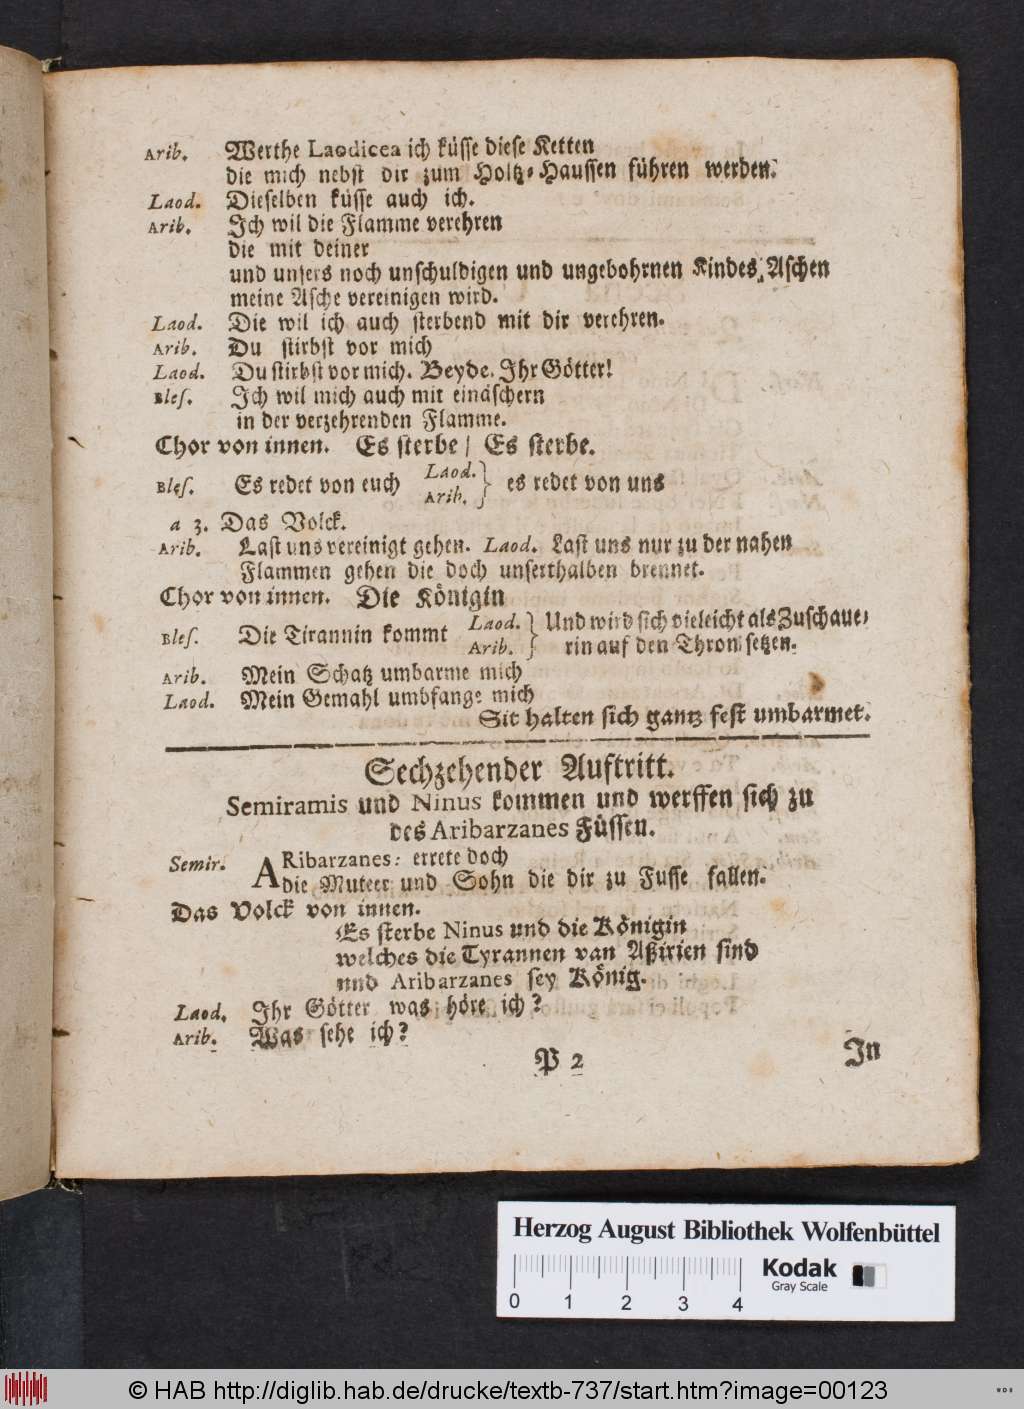 Arib. Werthe Laodicea ich küsse diese Ketten
die mich nebst dir zum Holtz-Haussen führen werden.
Laod. Dieselben küsse auch ich.
Arib. Ich wil die Flamme verehren
die mit deiner
und unsers noch unschuldigen und ungebohrnen Kindes Aschen
meine Asche vereinigen wird.
Laod. Die wil ich auch sterbend mit dir verehren.
Arib. Du stirbst vor mich
Laod. Du stirbst vor mich. Beyde. Ihr Götter!
Bles. Ich wil mich auch mit einäschern
in der verzehrenden Flamme.
Chor von innen. Es sterbe / Es sterbe.
Bles. Es redet von euch Laod. Arib. } es redet von uns
a 3. Das Volck.
Arib. Last uns vereinigt gehen. Laod. Last uns nur zu der nahen
Flammen gehen die doch unserthalben brennet.
Chor von innen. Die Königin
Bles. Die Tirannin kommt Laod. Arib. } Und wird sich vieleicht als Zuschaue-
rin auf den Thron setzen.
Arib. Mein Schatz umbarme mich
Laod. Mein Gemahl umbfange mich
Sit halten sich gantz fest umbarmet.
Sechzehender Auftritt.
Semiramis und Ninus kommen und werffen sich zu
des Aribarzanes Füssen.
Semir. ARibarzanes: errete doch
die Muteer und Sohn die dir zu Fusse fallen.
Das Volck von innen.
Es sterbe Ninus und die Königin
welches die Tyrannen van Aßirien sind
und Aribarzanes sey König.
Laod. Ihr Götter was höre ich?
Arib. Was sehe ich?
P 2 In
Herzog August Bibliothek Wolfenbüttel
0 1 2 3 4
Kodak
Gray Scale
© HAB http://diglib.hab.de/drucke/textb-737/start.htm?image=00123